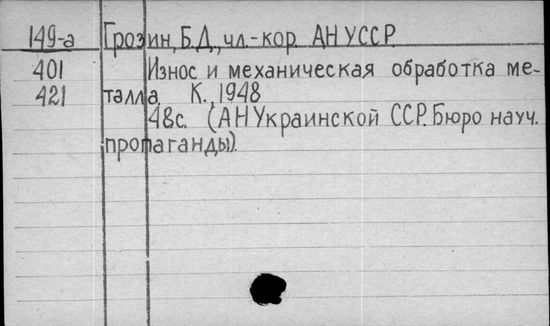 149-а Грозин, Б.Д., чл.-кор. АН УССР.
401 Износ и механическая обработка ме-
421 талла. К., 1948
48с. (АН Украинской ССР. Бюро науч.
пропаганды).